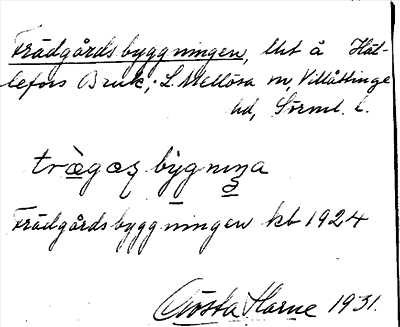 Trädgårdsbyggningen, lht å Häl-
lefors Bruk, L. Mellösa sn, Villåttinge
hd, Sörml. l.
trägaṣ bygniŋa
Trädgårdsbyggningen kb 1924
Gösta Harne 1931.